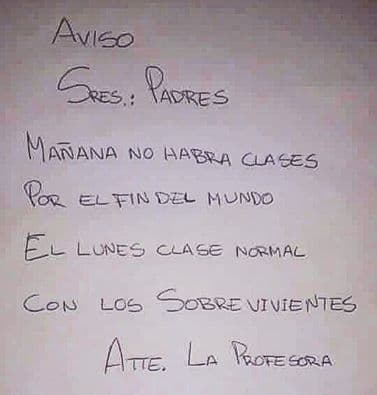 AVISO
SRES.: PADRES
MAÑANA NO HABRA CLASES
POR EL FIN DEL MUNDO
EL LUNES CLASE NORMAL
CON LOS SOBREVIVIENTES
ATTE. LA PROFESORA